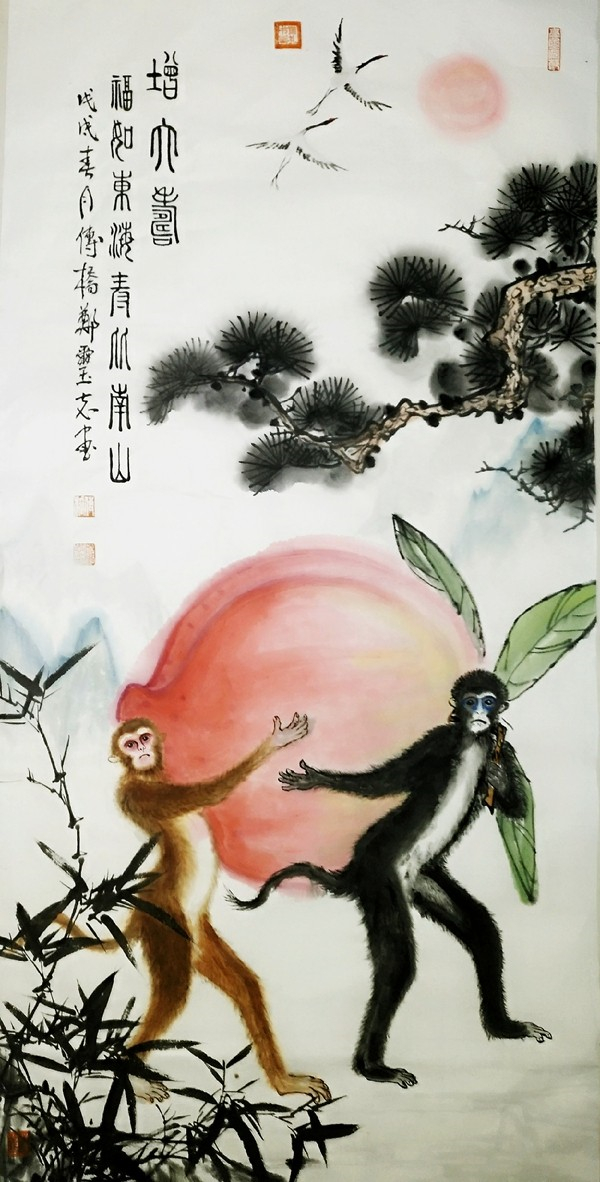 增大壽
福如東海寿比南山
戊戌春月傅橋鄭璽志画